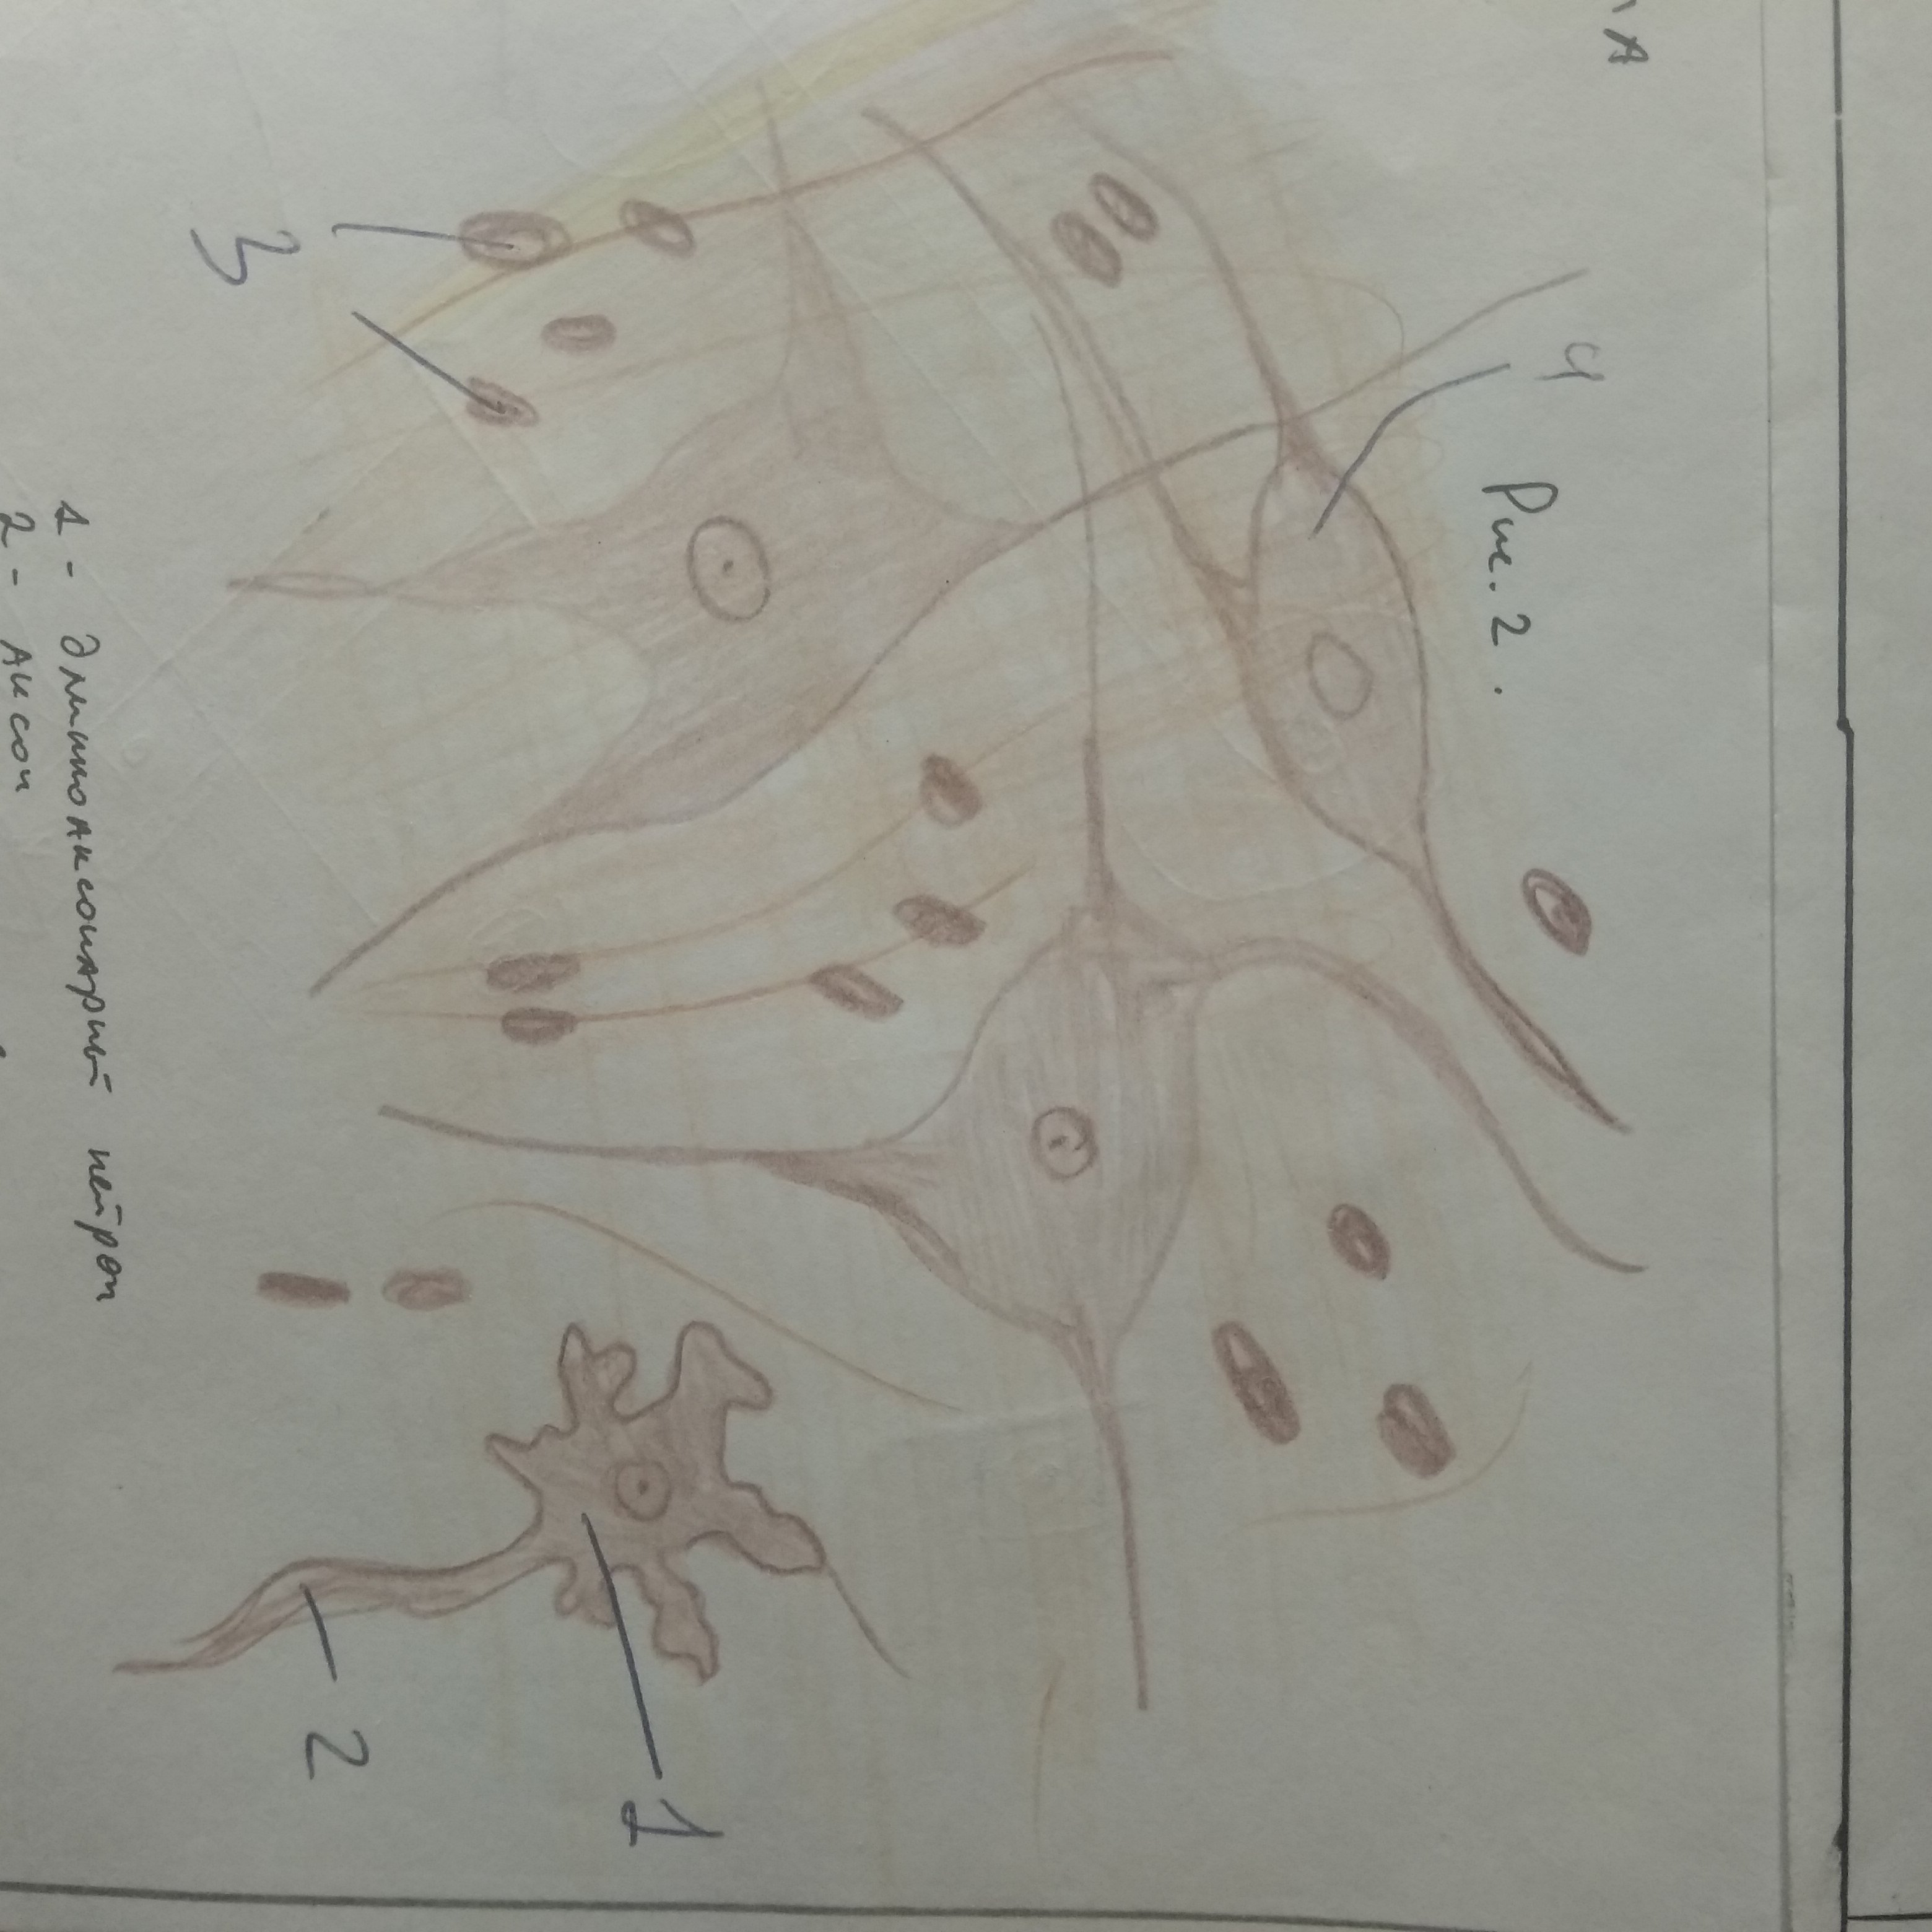 А
Рис. 2.
4
3
1
2
1 - длинноаксонарный нейрон
2 - аксон